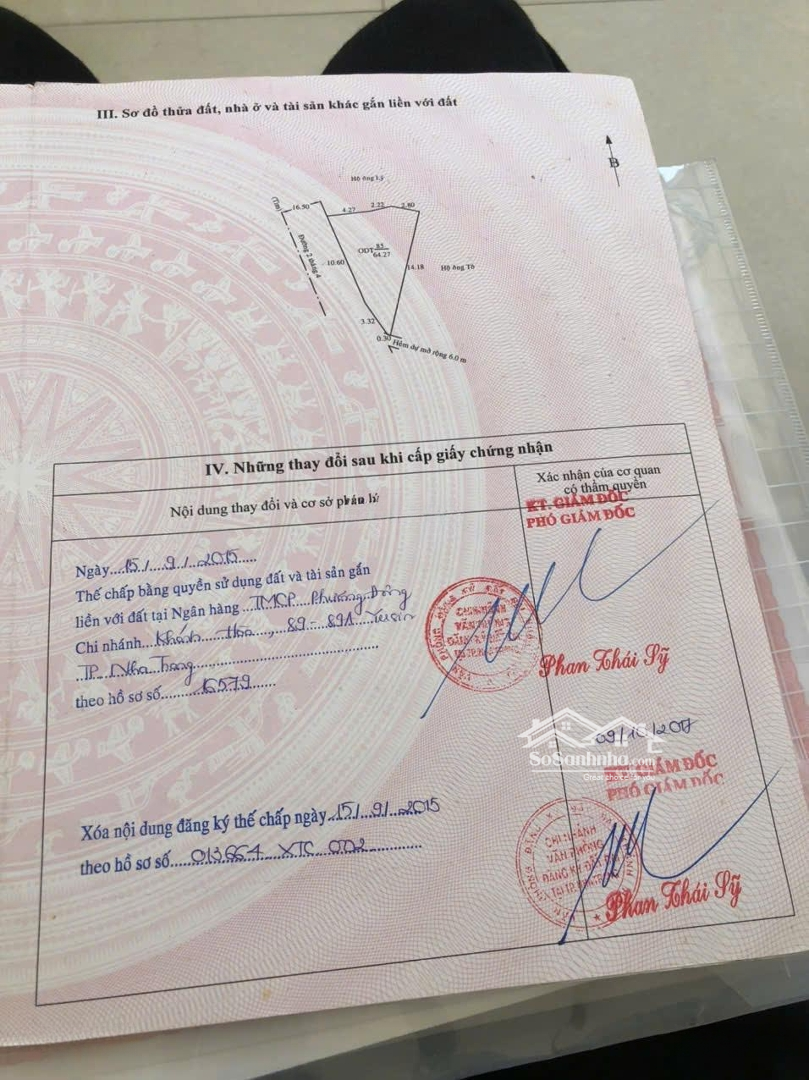 III. Sơ đồ thửa đất, nhà ở và tài sản khác gắn liền với đất
B
Hộ ông Lý
(Tim)
16.50
4.27
2.22
2.80
Đường 2 tháng 4
ODT 83
64.27
10.60
14.18
Hộ ông Tô
3.32
0.30
Hẻm dự mở rộng 6.0 m
IV. Những thay đổi sau khi cấp giấy chứng nhận
Nội dung thay đổi và cơ sở pháp lý
Xác nhận của cơ quan
có thẩm quyền
KT. GIÁM ĐỐC
PHÓ GIÁM ĐỐC
Ngày....15./..9./..2015
Thế chấp bằng quyền sử dụng đất và tài sản gắn
liền với đất tại Ngân hàng TMCP Phương Đông
Chi nhánh Khánh Hòa, 89-89A Yersin
TP. Nha Trang
theo hồ sơ số 16579
Phan Thái Sỹ
SoSanhnha.com
Great choice for you
GIÁM ĐỐC
PHÓ GIÁM ĐỐC
Xóa nội dung đăng ký thế chấp ngày..15/.9/..2015
theo hồ sơ số....013664 XTC 002
CHI NHÁNH
VĂN PHÒNG
ĐĂNG KÝ ĐẤT ĐAI
Phan Thái Sỹ